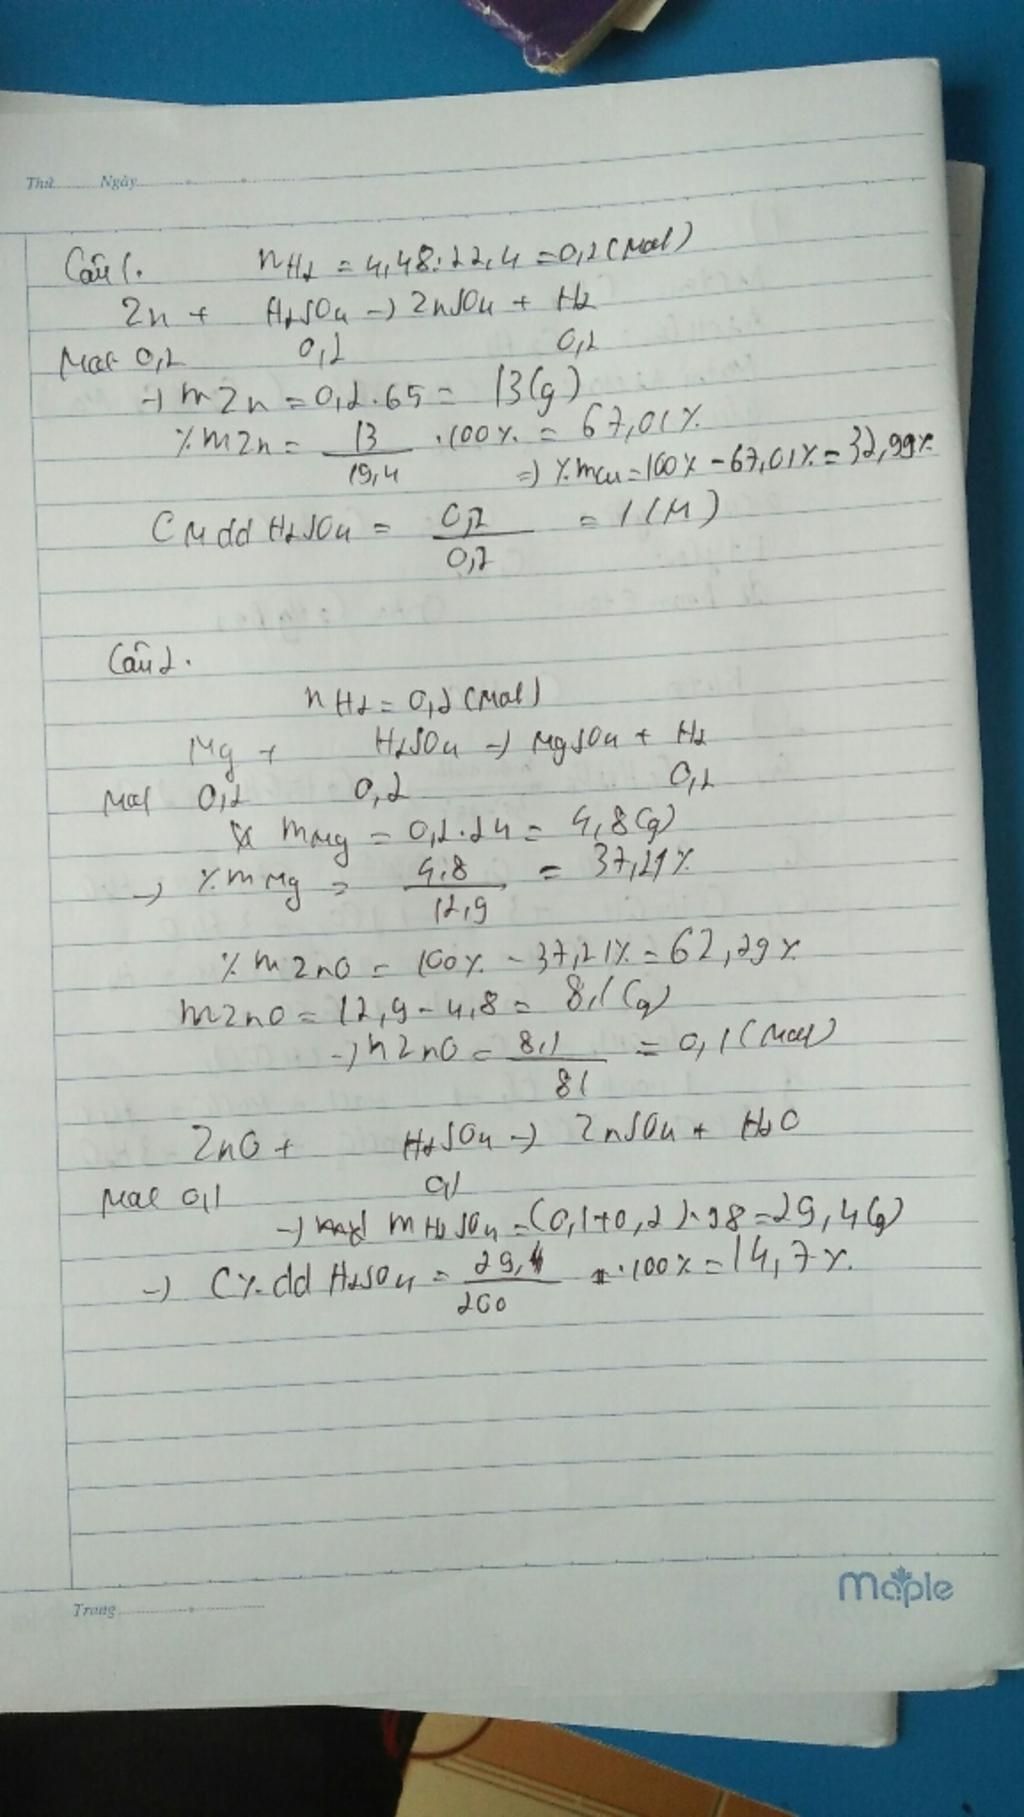 Thứ Ngày
Câu 1. nH2 = 4,48:22,4 = 0,2 (mol)
Zn + H2SO4 -> ZnSO4 + H2
Mol 0,2 0,2 0,2
-> mZn = 0,2.65 = 13(g)
%mZn = 13/19,4 .100% = 67,01%
=> %mCu = 100% - 67,01% = 32,99%
CM dd H2SO4 = 0,2/0,2 = 1 (M)
Câu 2.
nH2 = 0,2 (mol)
Mg + H2SO4 -> MgSO4 + H2
Mol 0,2 0,2 0,2
mMg = 0,2.24 = 4,8(g)
-> %mMg = 4,8/12,9 = 37,21%
%mZnO = 100% - 37,21% = 62,79%
mZnO = 12,9 - 4,8 = 8,1(g)
-> nZnO = 8,1/81 = 0,1 (mol)
ZnO + H2SO4 -> ZnSO4 + H2O
Mol 0,1 0,1
-> mH2SO4 = (0,1+0,2).98 = 29,4(g)
-> C% dd H2SO4 = 29,4/200 .100% = 14,7%.
Maple
Trang